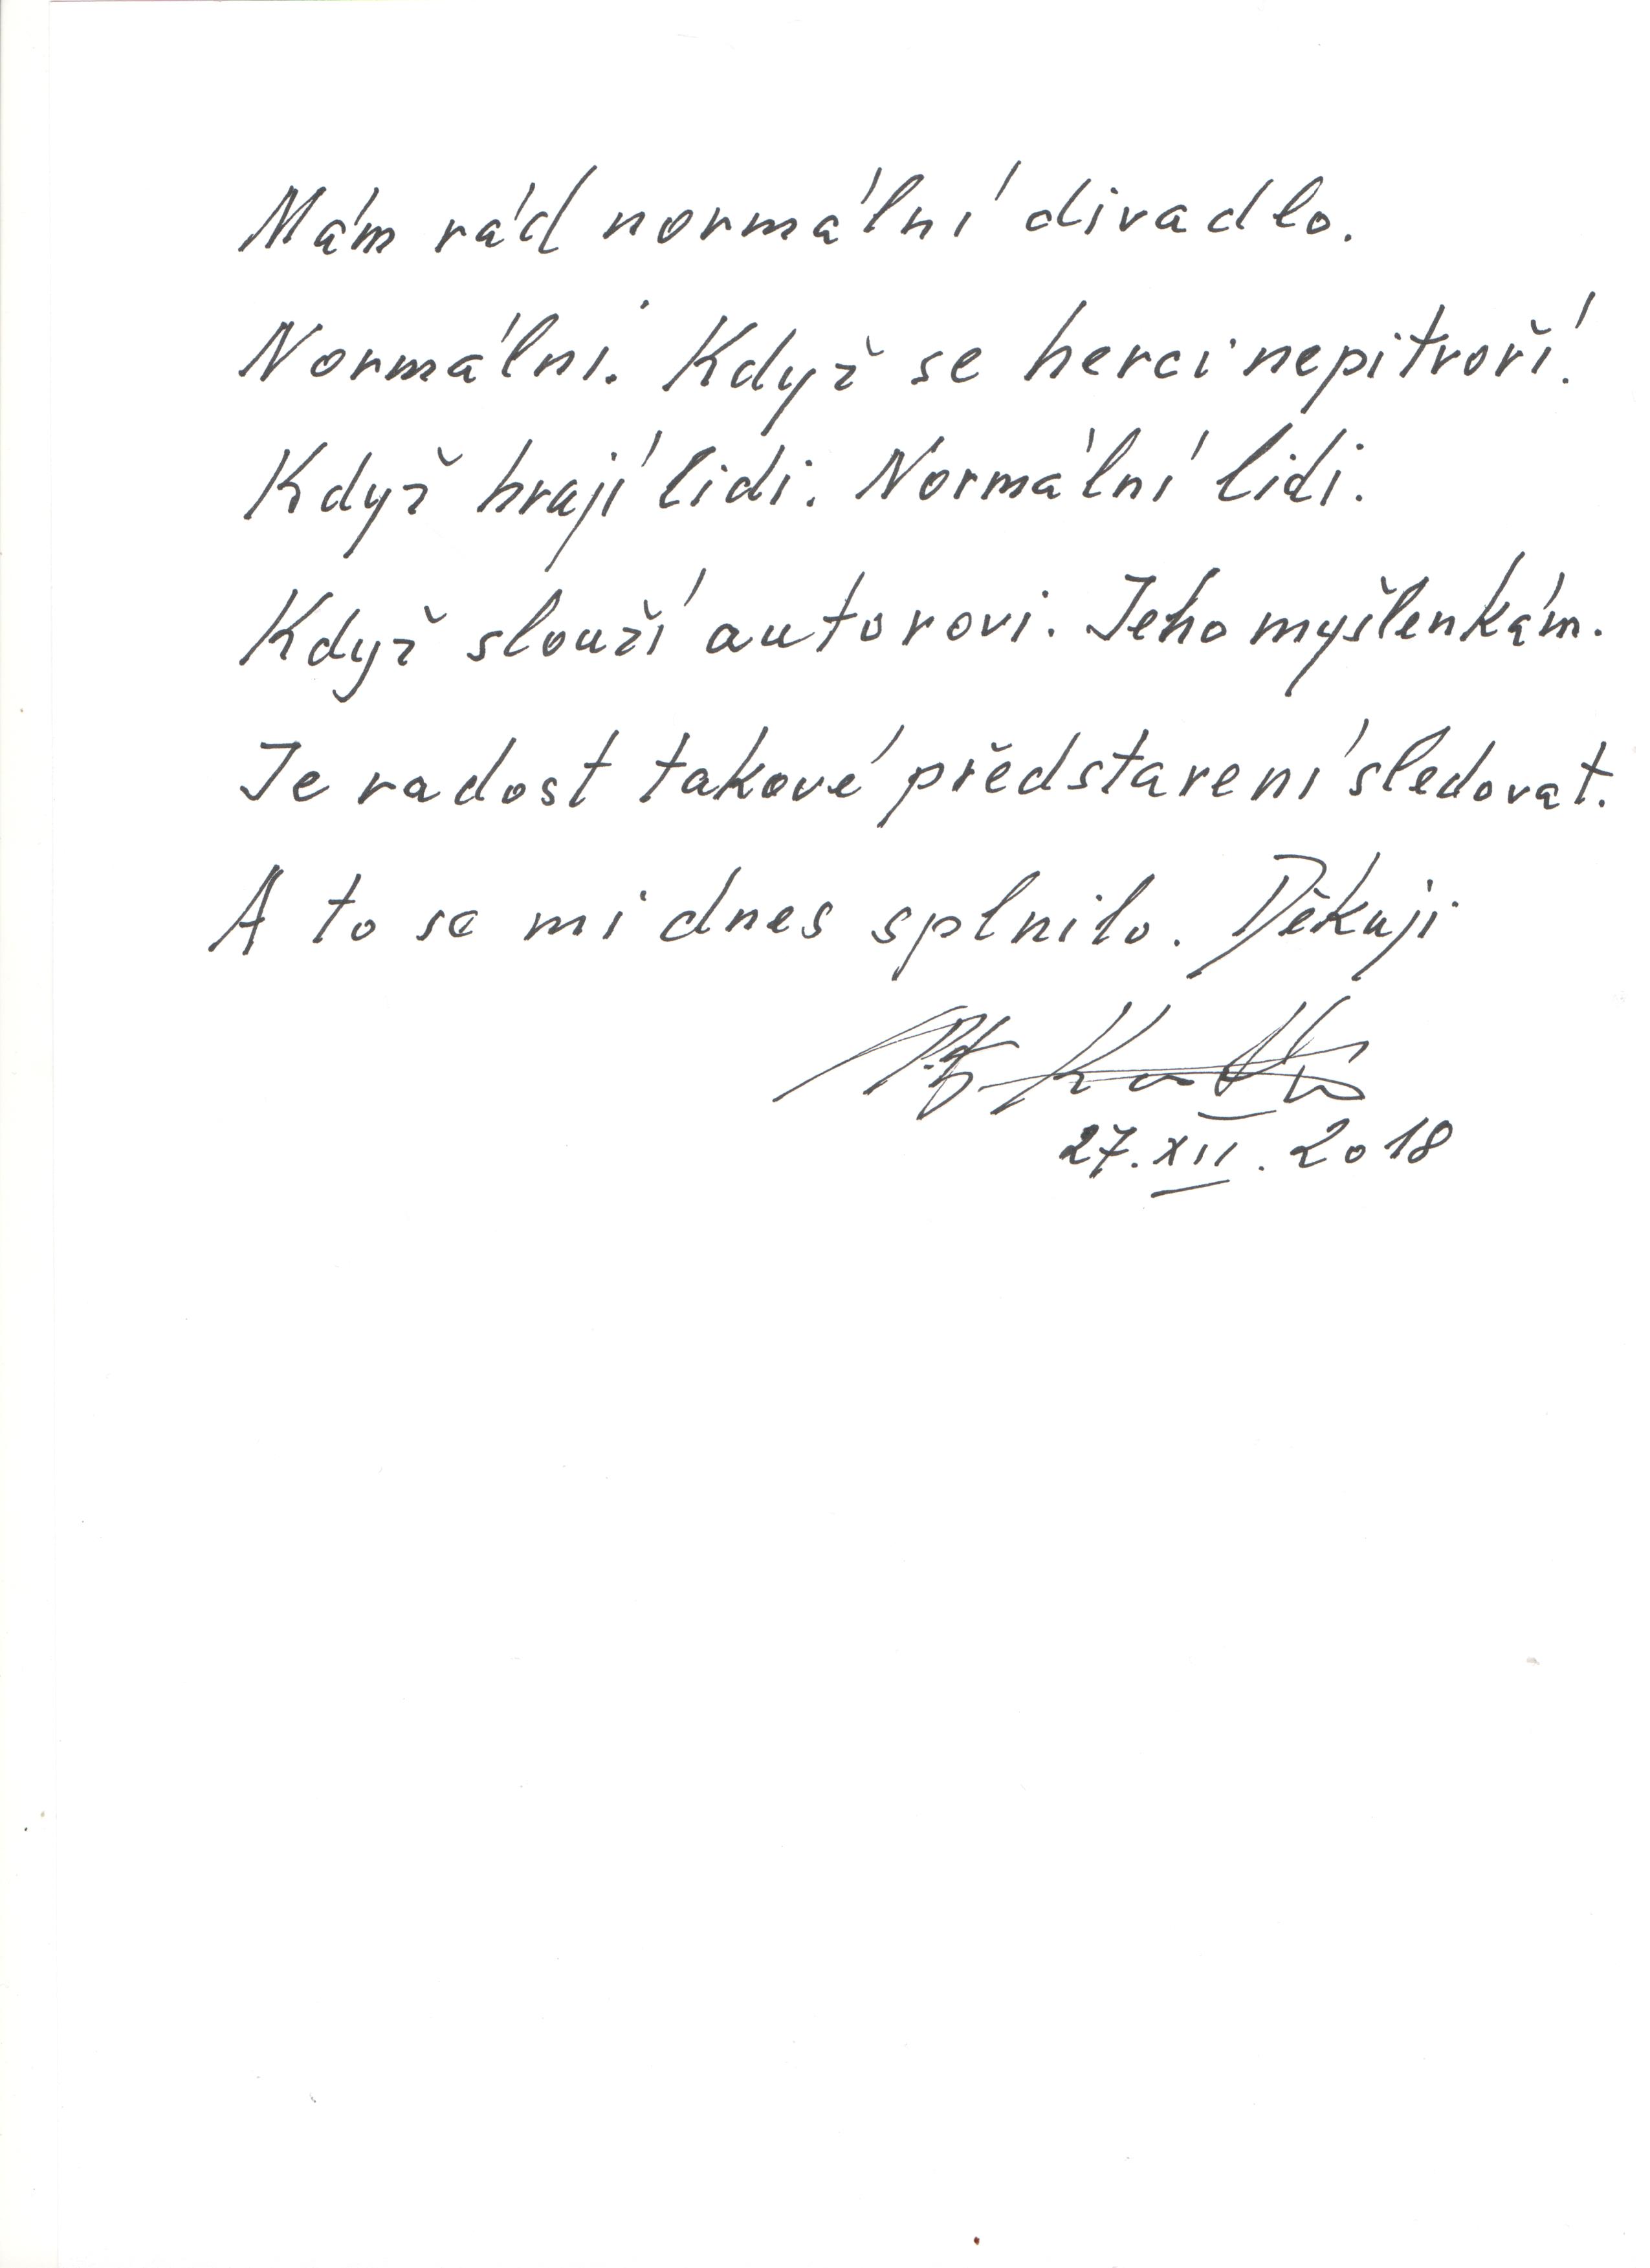 Mám rád normální divadlo.
Normální. Když se herci nepitvoří.
Když hrají lidi. Normální lidi.
Když slouží autorovi. Jeho myšlenkám.
Je radost takové představení sledovat.
A to se mi dnes splnilo. Děkuji
27. XII. 2018